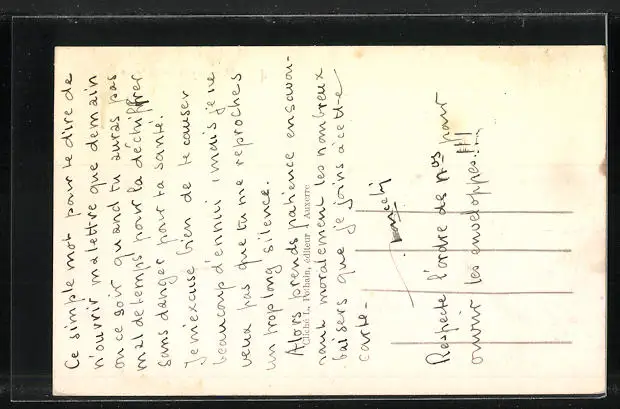 Ce simple mot pour te dire de
n'ouvrir ma lettre que demain
ou ce soir quand tu auras pas
mal de temps pour la déchiffrer
sans danger pour ta santé.
Je m'excuse bien de te causer
beaucoup d'ennui, mais je ne
veux pas que tu me reproches
un trop long silence.
Alors prends patience en savou-
rant moralement les nombreux
baisers que je joins à cette
carte-
Cliché L. Pothain, éditeur Auxerre
Respecte l'ordre des nos pour
ouvrir les enveloppes..!!!